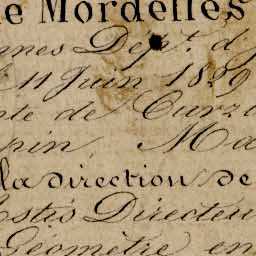 e Mordelles
nnes Dépt. d
11 Juin 1829
nte de Curza
pin, Ma
la direction de
Estis Directeu
Géomètre en